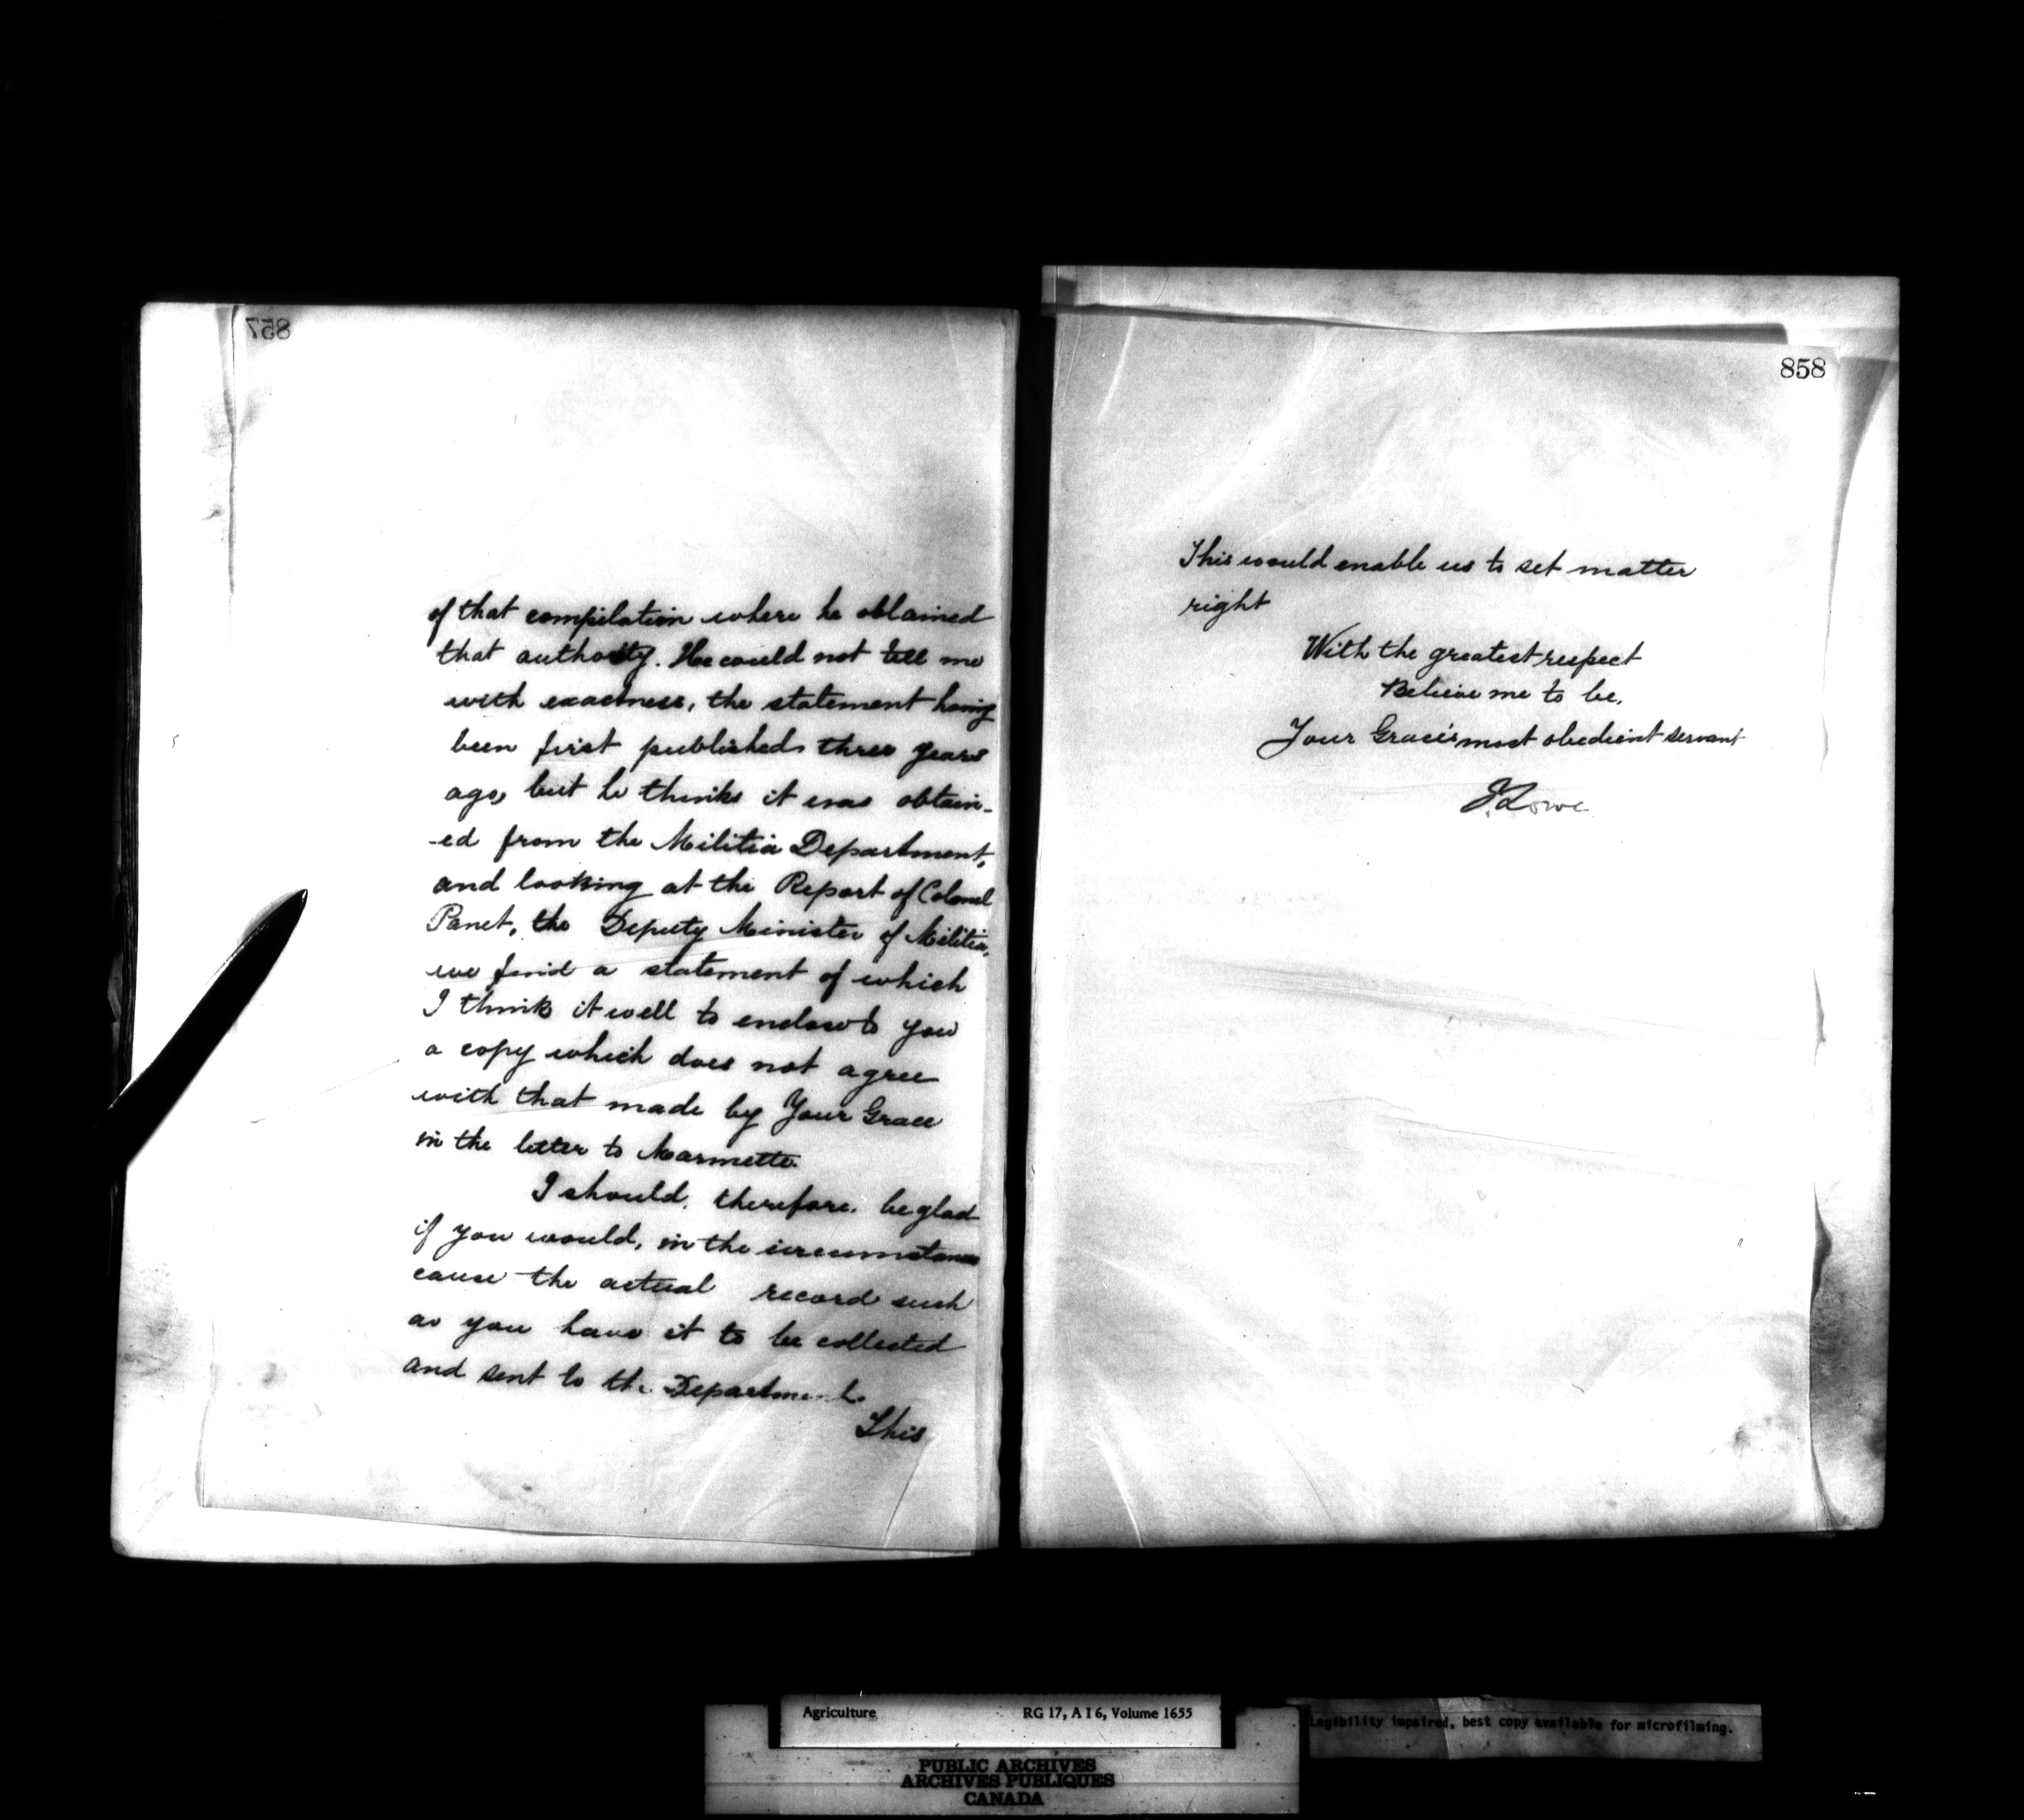 857
of that compilation where he obtained
that authority. He could not tell me
with exactness, the statement having
been first published three years
ago, but he thinks it was obtain-
-ed from the Militia Department,
and looking at the Report of Colonel
Panet, the Deputy Minister of Militia,
we find a statement of which
I think it well to enclose to you
a copy which does not agree
with that made by Your Grace
in the letter to Marmette.
I should, therefore, be glad
if you would, in the circumstances
cause the actual record such
as you have it to be collected
and sent to the Department.
This
858
This would enable us to set matter
right
With the greatest respect
Believe me to be,
Your Grace's most obedient servant
J. Lowe
Agriculture RG 17, A I 6, Volume 1655
Legibility impaired, best copy available for microfilming.
PUBLIC ARCHIVES
ARCHIVES PUBLIQUES
CANADA